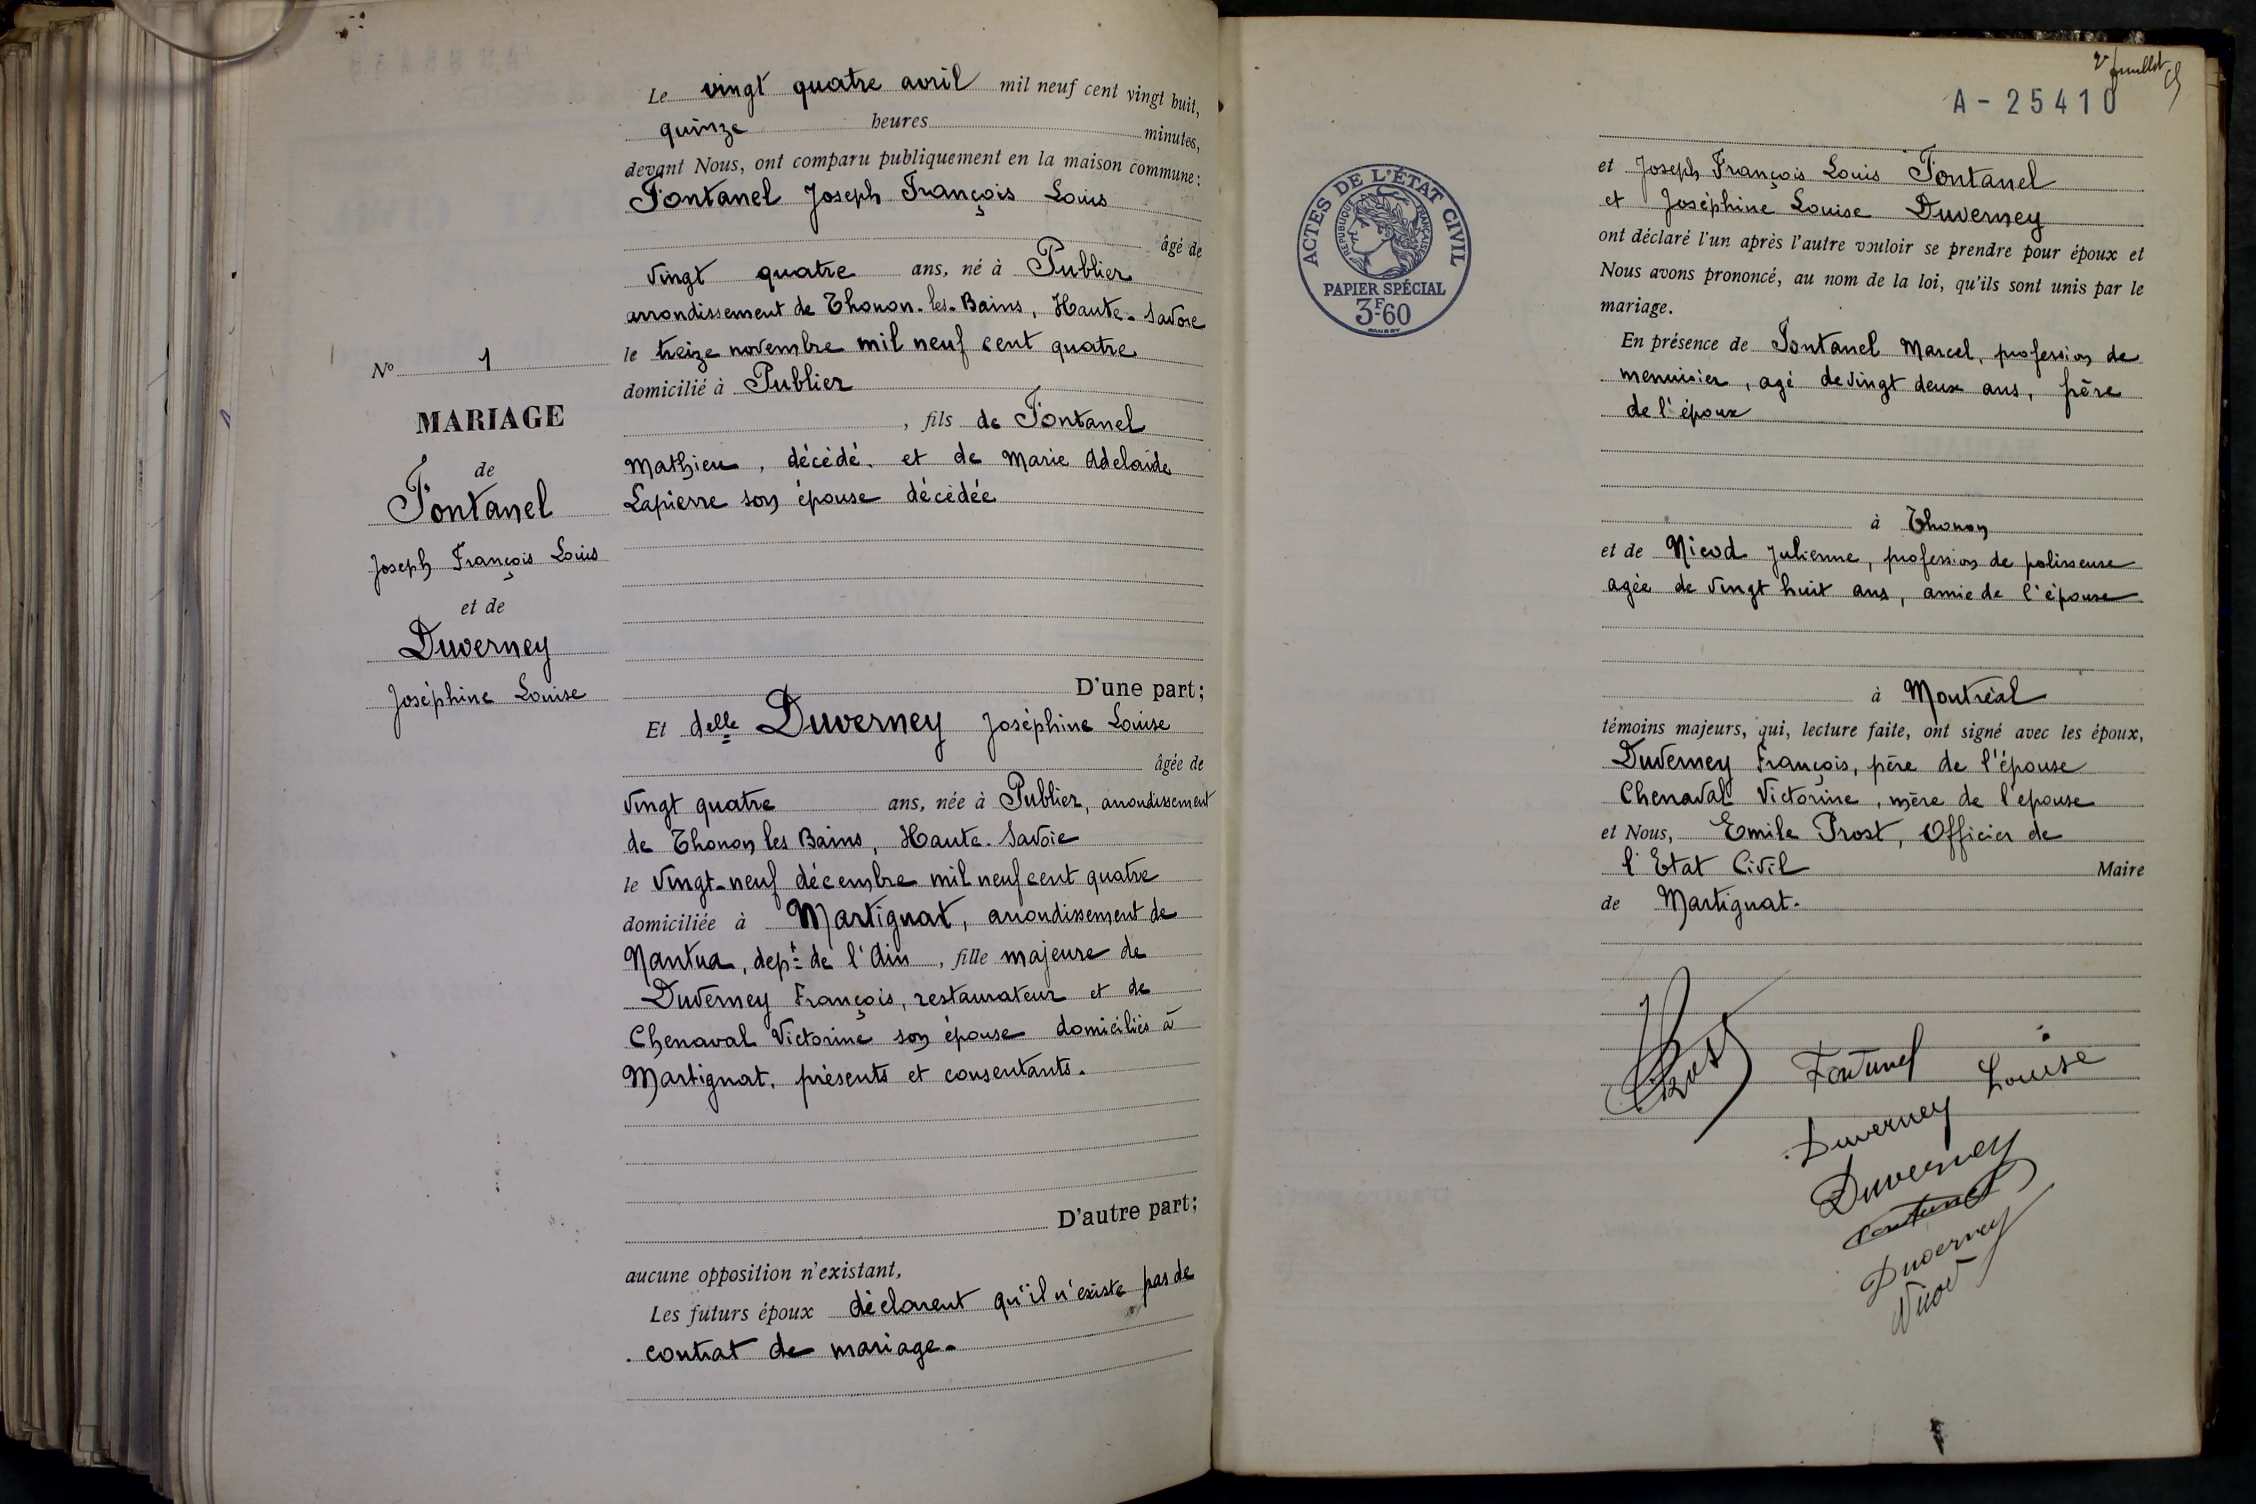 Le vingt quatre avril mil neuf cent vingt huit,
quinze heures minutes,
devant Nous, ont comparu publiquement en la maison commune:
Fontanel Joseph François Louis
âgé de
vingt quatre ans, né à Publier
arrondissement de Thonon-les-Bains, Haute-Savoie
le treize novembre mil neuf cent quatre
domicilié à Publier
, fils de Fontanel
Mathieu, décédé, et de Marie Adelaide
Lapierre son épouse décédée
No 1
MARIAGE
de
Fontanel
Joseph François Louis
et de
Duverney
Joséphine Louise
D'une part;
Et delle Duverney Joséphine Louise
âgée de
vingt quatre ans, née à Publier, arrondissement
de Thonon les Bains, Haute-Savoie
le vingt-neuf décembre mil neuf cent quatre
domiciliée à Martignat, arrondissement de
Nantua, dept de l'Ain, fille majeure de
Duverney François, restaurateur et de
Chenaval Victorine son épouse domiciliés à
Martignat, présents et consentants.
D'autre part;
aucune opposition n'existant,
Les futurs époux déclarent qu'il n'existe pas de
contrat de mariage.
2e feuillet
A-25410
ACTES DE L'ÉTAT CIVIL
RÉPUBLIQUE FRANÇAISE
PAPIER SPÉCIAL
3F60
et Joseph François Louis Fontanel
et Joséphine Louise Duverney
ont déclaré l'un après l'autre vouloir se prendre pour époux et
Nous avons prononcé, au nom de la loi, qu'ils sont unis par le
mariage.
En présence de Fontanel Marcel, profession de
menuisier, agé de vingt deux ans, frère
de l'époux
à Thonon
et de Nicod Julienne, profession de polisseuse
agée de vingt huit ans, amie de l'épouse
à Montréal
témoins majeurs, qui, lecture faite, ont signé avec les époux,
Duverney François, père de l'épouse
Chenaval Victorine, mère de l'épouse
et Nous, Emile Prost, Officier de
l'Etat Civil Maire
de Martignat.
Prost Fontanel Louise
Duverney
Duverney
Fontanel
Duverney
Nicod